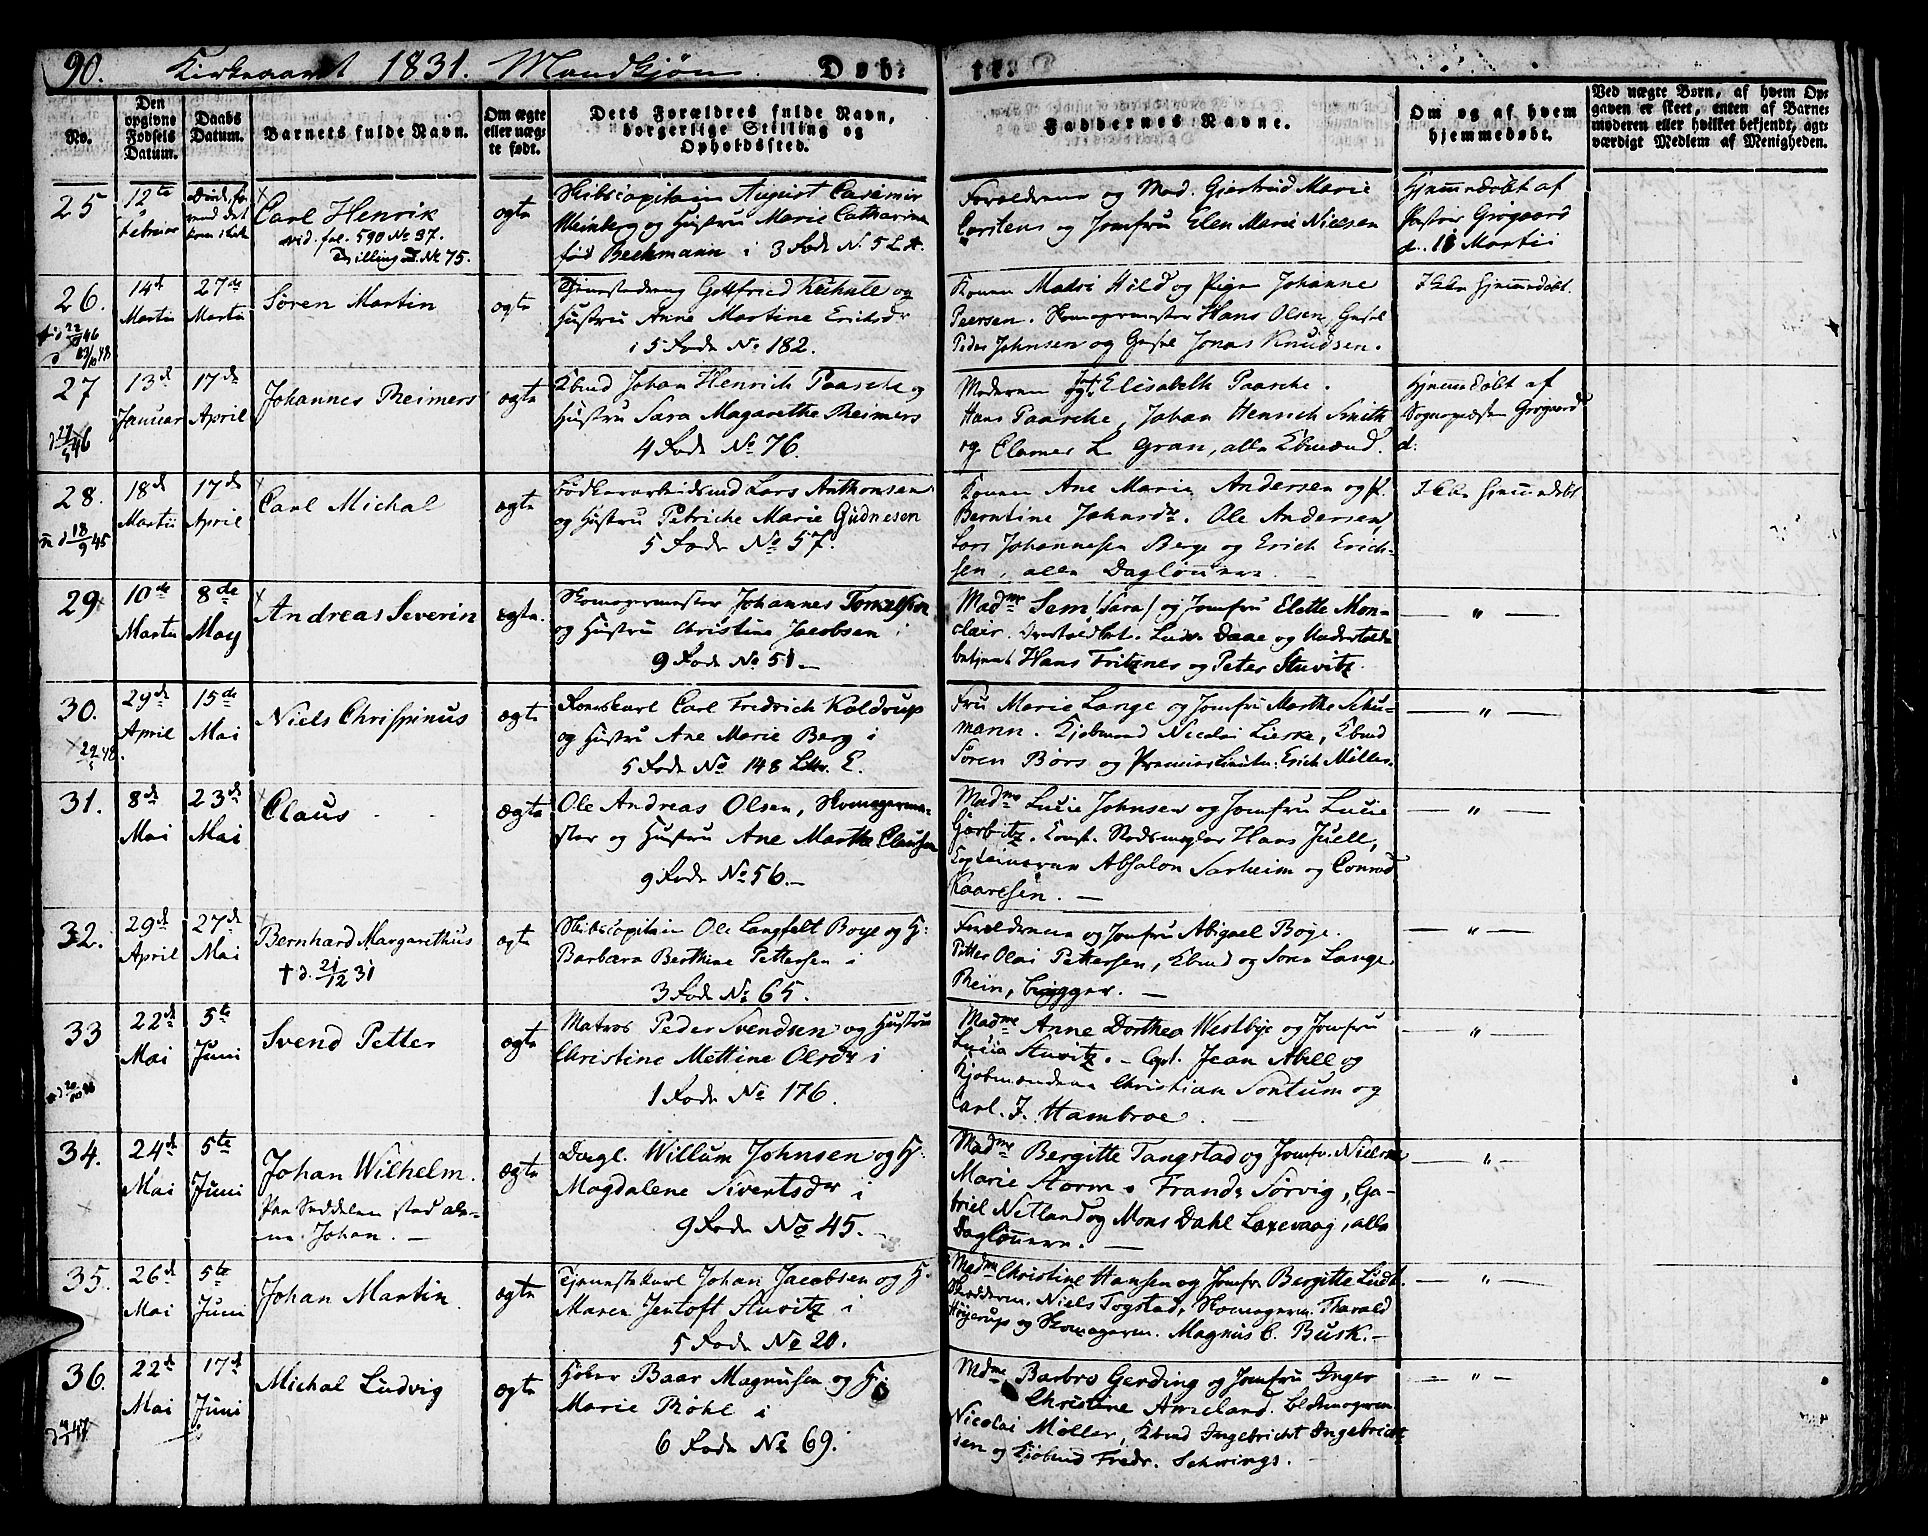 90. Kirkeaaret 1831. Mandkjøn. Døb- te.
No.
Den opgivne Fødsels Datum.
Daabs Datum.
Barnets fulde Navn.
Om ægte eller uæg- te født.
Dets Forældres fulde Navn, borgerlige Stilling og Opholdssted.
Faddernes Navne.
Om og af hvem hjemmedøbt.
Ved uægte Børn, af hvem Op- gaven er skeet, enten af Barne- moderen eller hvilket bekjendt, agt- værdigt Medlem af Menigheden.
25
12te Februar
Carl Henrik
vid. fol. 590 No 37.
Tvilling No 75.
ægte
Skibscapitain August Casimir
Meinberg og Hustru Marie Catharina
fød Beckmann i 3 Rode N. 5 L A.
Forældrene og Mad. Gjertrud Marie
Carstens og Jomfru Elen Marie Nielsen
Hjemmedøbt af
Grøgaard
d. 18 Martii
26.
14d Martii
27de Martii
Søren Martin
ægte
Gottfried Kühnle og
Hustru Anne Martine Erichsdr
i 5 Rode No 182.
Konen Madsi Hild og Pigen Johanne
Peersen. Skomagermester Hans Olsen, Gusel
Peder Johnsen og Gusel Jonas Knudsen.
Ikke hjemmedøbt.
27
13d Januar
17de April
Johannes Reimers
ægte
Kbmd Johan Henrich Paasche og
Hustru Sara Magarethe Reimers
4 Rode No 76.
Moderen Jof. Elisabeth Paasche.
Hans Paasche, Johan Henrich Smith
og Clamer L Gran, alle Kbmænd.
Hjemmedøbt af
Sognepræsten Grøgaard
d.
28.
18d Martii
17de April
Carl Michal
ægte
Bødkerarbeidsmd Lars Anthonsen
og Hustru Petriche Marie Gudnesen
5 Rode No 57.
Konen Ane Marie Andersen og P.
Berntine Johnsdr. Ole Andersen,
Lars Johannesen Berge og Erich Erich-
sen, alle Daglønnere
Ikke hjemmedøbt
29
10de Martii
8de May
Andreas Severin
ægte.
Skomagermester Johannes Tonnessen
og Hustru Christine Jacobsen i
9 Rode No 51.
Madme Sem (Sara) og Jomfru Elette Mon-
clair. Overtoldbet. Ludv. Daae og Undertold-
betjent Hans Fritznes og Peter Stuvitz.
— " —
30.
29d April
15de Mai
Niels Chrispinus
ægte
Carl Fredrich Koldrup
og Hustru Ane Marie Berg i
5 Rode No 148 Litr. E.
Fru Marie Lange og Jomfru Marthe Schu-
mann. Kjøbmand Nicolai Lieske, Kbmd
Søren Børs og Premierlieutn. Erich Møller.
— " —
31.
8de Mai
23de Mai
Claus
ægte
Ole Andreas Olsen, Skomagerme-
ster og Hustru Ane Marthe Clausen
9 Rode No 56.
Madme Lucie Johnsen og Jomfru Lucie
Garbitz. Const. Stadsmægler Hans Juell,
Capteinerne Absalon Sarheim og Conrad
Kaaresen.
— " —
32.
29d April
27de Mai
Bernhard Margarethus
† d. 21/12 31
ægte
Skibscapitain Ole Langfelt Boye og H:
Barbara Berthine Pettersen i
3 Rode No 65.
Forældrene og Jomfru Abigael Boye.
Petter Olai Pettersen, Kbmd og Søren Lange
Rein, brygger.
— " —
33
22de Mai
5te Juni
Svend Petter
ægte
Matros Peder Svendsen og Hustru
Christine Mettine Olsdr i
1 Rode No 176.
Madme Anne Dorthea Westbye og Jomfru
Lucia Stuvitz. — Cpt. Jean Abell og
Kjøbmændene Christian Sontum og
Carl. J. Hambroe.
— " —
34.
24d Mai
5te Juni
Johan Wilhelm.
Paa Seddelen stod ale-
ne. Johan.
ægte
Dagl. Willum Johnsen og H:
Magdalene Sivertsdr i
9 Rode No 45.
Madme Bergitte Tangstad og Jomfr. Nielsine
Marie Storm. Frands Sørvig, Ga-
briel Netland og Mons Dahl Laxevaag, alle
Daglønnere.
— " —
35.
26d Mai
5te Juni
Johan Martin
ægte
Tjenestekarl Johan Jacobsen og H.
Maren Jentoft Stuvitz i
5 Rode No 20.
Madme Christine Hansen og Jomfr. Bergitte Ludt.
Skrædderm. Niels Togstad, Skomagerm. Tharald
Høyerup og Skomagerm. Magnus C. Busk.
— " —
36.
22d Mai
17d Juni
Michal Ludvig
ægte
Baar Magnusen og H:
Marie Røhl i
6 Rode No 69.
Mdme Barbro Gerding og Jomfru Inger
Christine Ameland. Blokmagerm.
Nicolai Møller, Kbmd Ingebricht Ingebricht-
sen og Kiøbmd Fredr. Schwings.
— " —